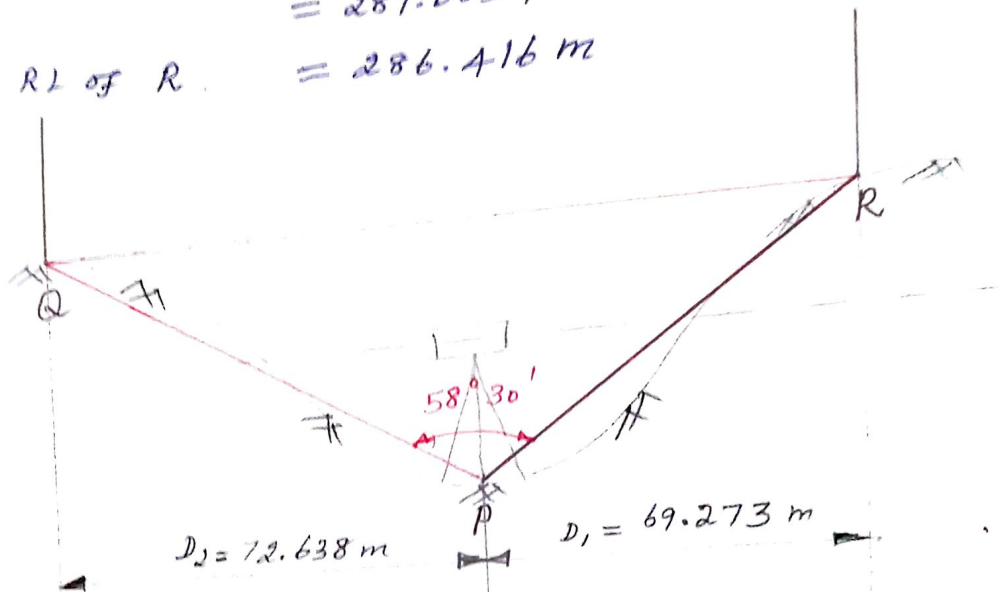 =
RL of R. = 286.416 m
R
Q
58° 30'
P
D₂ = 72.638 m
D₁ = 69.273 m